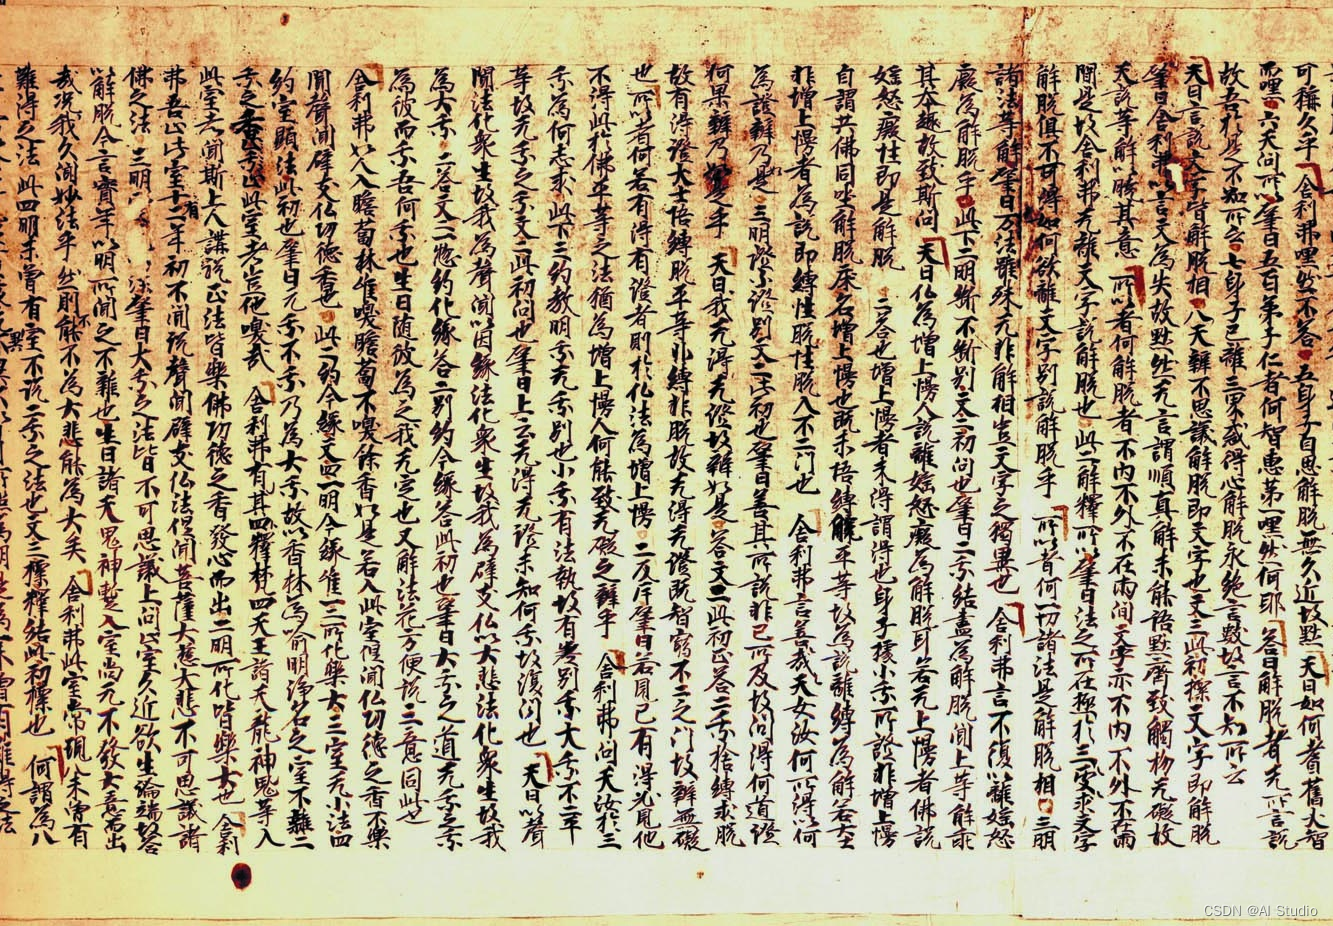 可稱久乎 舍利弗嘿然不答 五身子自思解脫無久近故默 天曰如何耆舊大智
而嘿 六天問所以肇曰五百弟子仁者何智惠第一嘿然何耶 答曰解脫者无所言說
故吾於是不知所云 七身子已離三界惑得心解脫永絕言數故言不知所云
天曰言說文字皆解脫相 八天辯不思議解脫即文字也文三此初標文字即解脫
肇曰舍利弗以言文為失故默然无言謂順真解未能語默齊致觸物无礙故
天說等解以暁其意 所以者何解脫者不內不外不在兩間文字亦不內不外不在兩
間是故舍利弗无離文字說解脫也 此二解釋所以肇曰法之所在極於三處求文字
解脫俱不可得如何欲離文字別說解脫乎 所以者何一切諸法是解脫相 三明
諸法等解肇曰万法雖殊无非解相豈文字之獨異也 舍利弗言不復以離婬怒
癡為解脫乎 此下二明斷不斷別文二初問也肇曰二乘結盡為解脫聞上等解乖
其本趣故致斯問 天曰仏為增上慢人說離婬怒癡為解脫耳若无上慢者佛說
婬怒癡性即是解脫 二答也增上慢者未得謂得也身子據小乘所證非增上慢
自謂共佛同坐解脫床名增上慢也既未悟縛解平等故為說離縛為解若存
非增上慢者為說即縛性脫性脫入不二門也 舍利弗言善哉天女汝何所得以何
為證辯乃如是 三明證不證別文二此初也肇曰善其所說非己所及故問得何道證
何果辯乃如是乎 天曰我无得无證故辯如是 答文二此初正答二乘捨縛求脫
故有得證大士悟縛脫平等非縛非脫故无得无證既智窮不二之門故辯無礙
也 所以者何若有得有證者則於仏法為增上慢 二反斥肇曰若見己有得必見他
不得此於佛平等之法猶為增上慢人何能致无礙之辯乎 舍利弗問天汝於三
乘為何志求 此下三約教明乘无乘別也小乘有法執故有異別乘大乘不二平
等故无乘之乘文二此初問也肇曰上云无得无證未知何乘故復問也 天曰以聲
聞法化衆生故我為聲聞以因緣法化衆生故我為辟支仏以大悲法化衆生故我
為大乘 二答文二惣約化緣答二別約今緣答此初也肇曰大乘之道无乘之乘
為彼而乘吾何乘也生曰随彼為之我无定也又解法花方便說三意同此也
舍利弗如人入瞻蔔林唯嗅瞻蔔不嗅餘香如是若入此室但聞仏功德之香不樂
聞聲聞辟支仏功德香也 此二約今緣文四一明今緣唯一二所化樂大三室无小法四
約室顯法此初也肇曰无乘不乘乃為大乘故以香林為喻明淨名之室不雜二
乘之香止此室者豈他嗅哉 舍利弗有其四釋梵四天王諸天龍神鬼等入
此室者聞斯上人講說正法皆樂佛功德之香發心而出 二明所化皆樂大也 舍利
弗吾止此室十有二年初不聞說聲聞辟支仏法但聞菩薩大慈大悲不可思議諸
佛之法 三明 肇曰大乘之法皆曰不可思議上問止室久近欲生論端故答
以解脫今言實年以明所聞之不雜也生曰諸天鬼神蹔入室尚无不發大意而出
哉況我久聞妙法乎然則不能不為大悲能為大矣 舍利弗此室常現八未曾有
難得之法 此四明未曾有室不說二乘之法也文三標釋結此初標也 何謂為八
CSDN @AI Studio